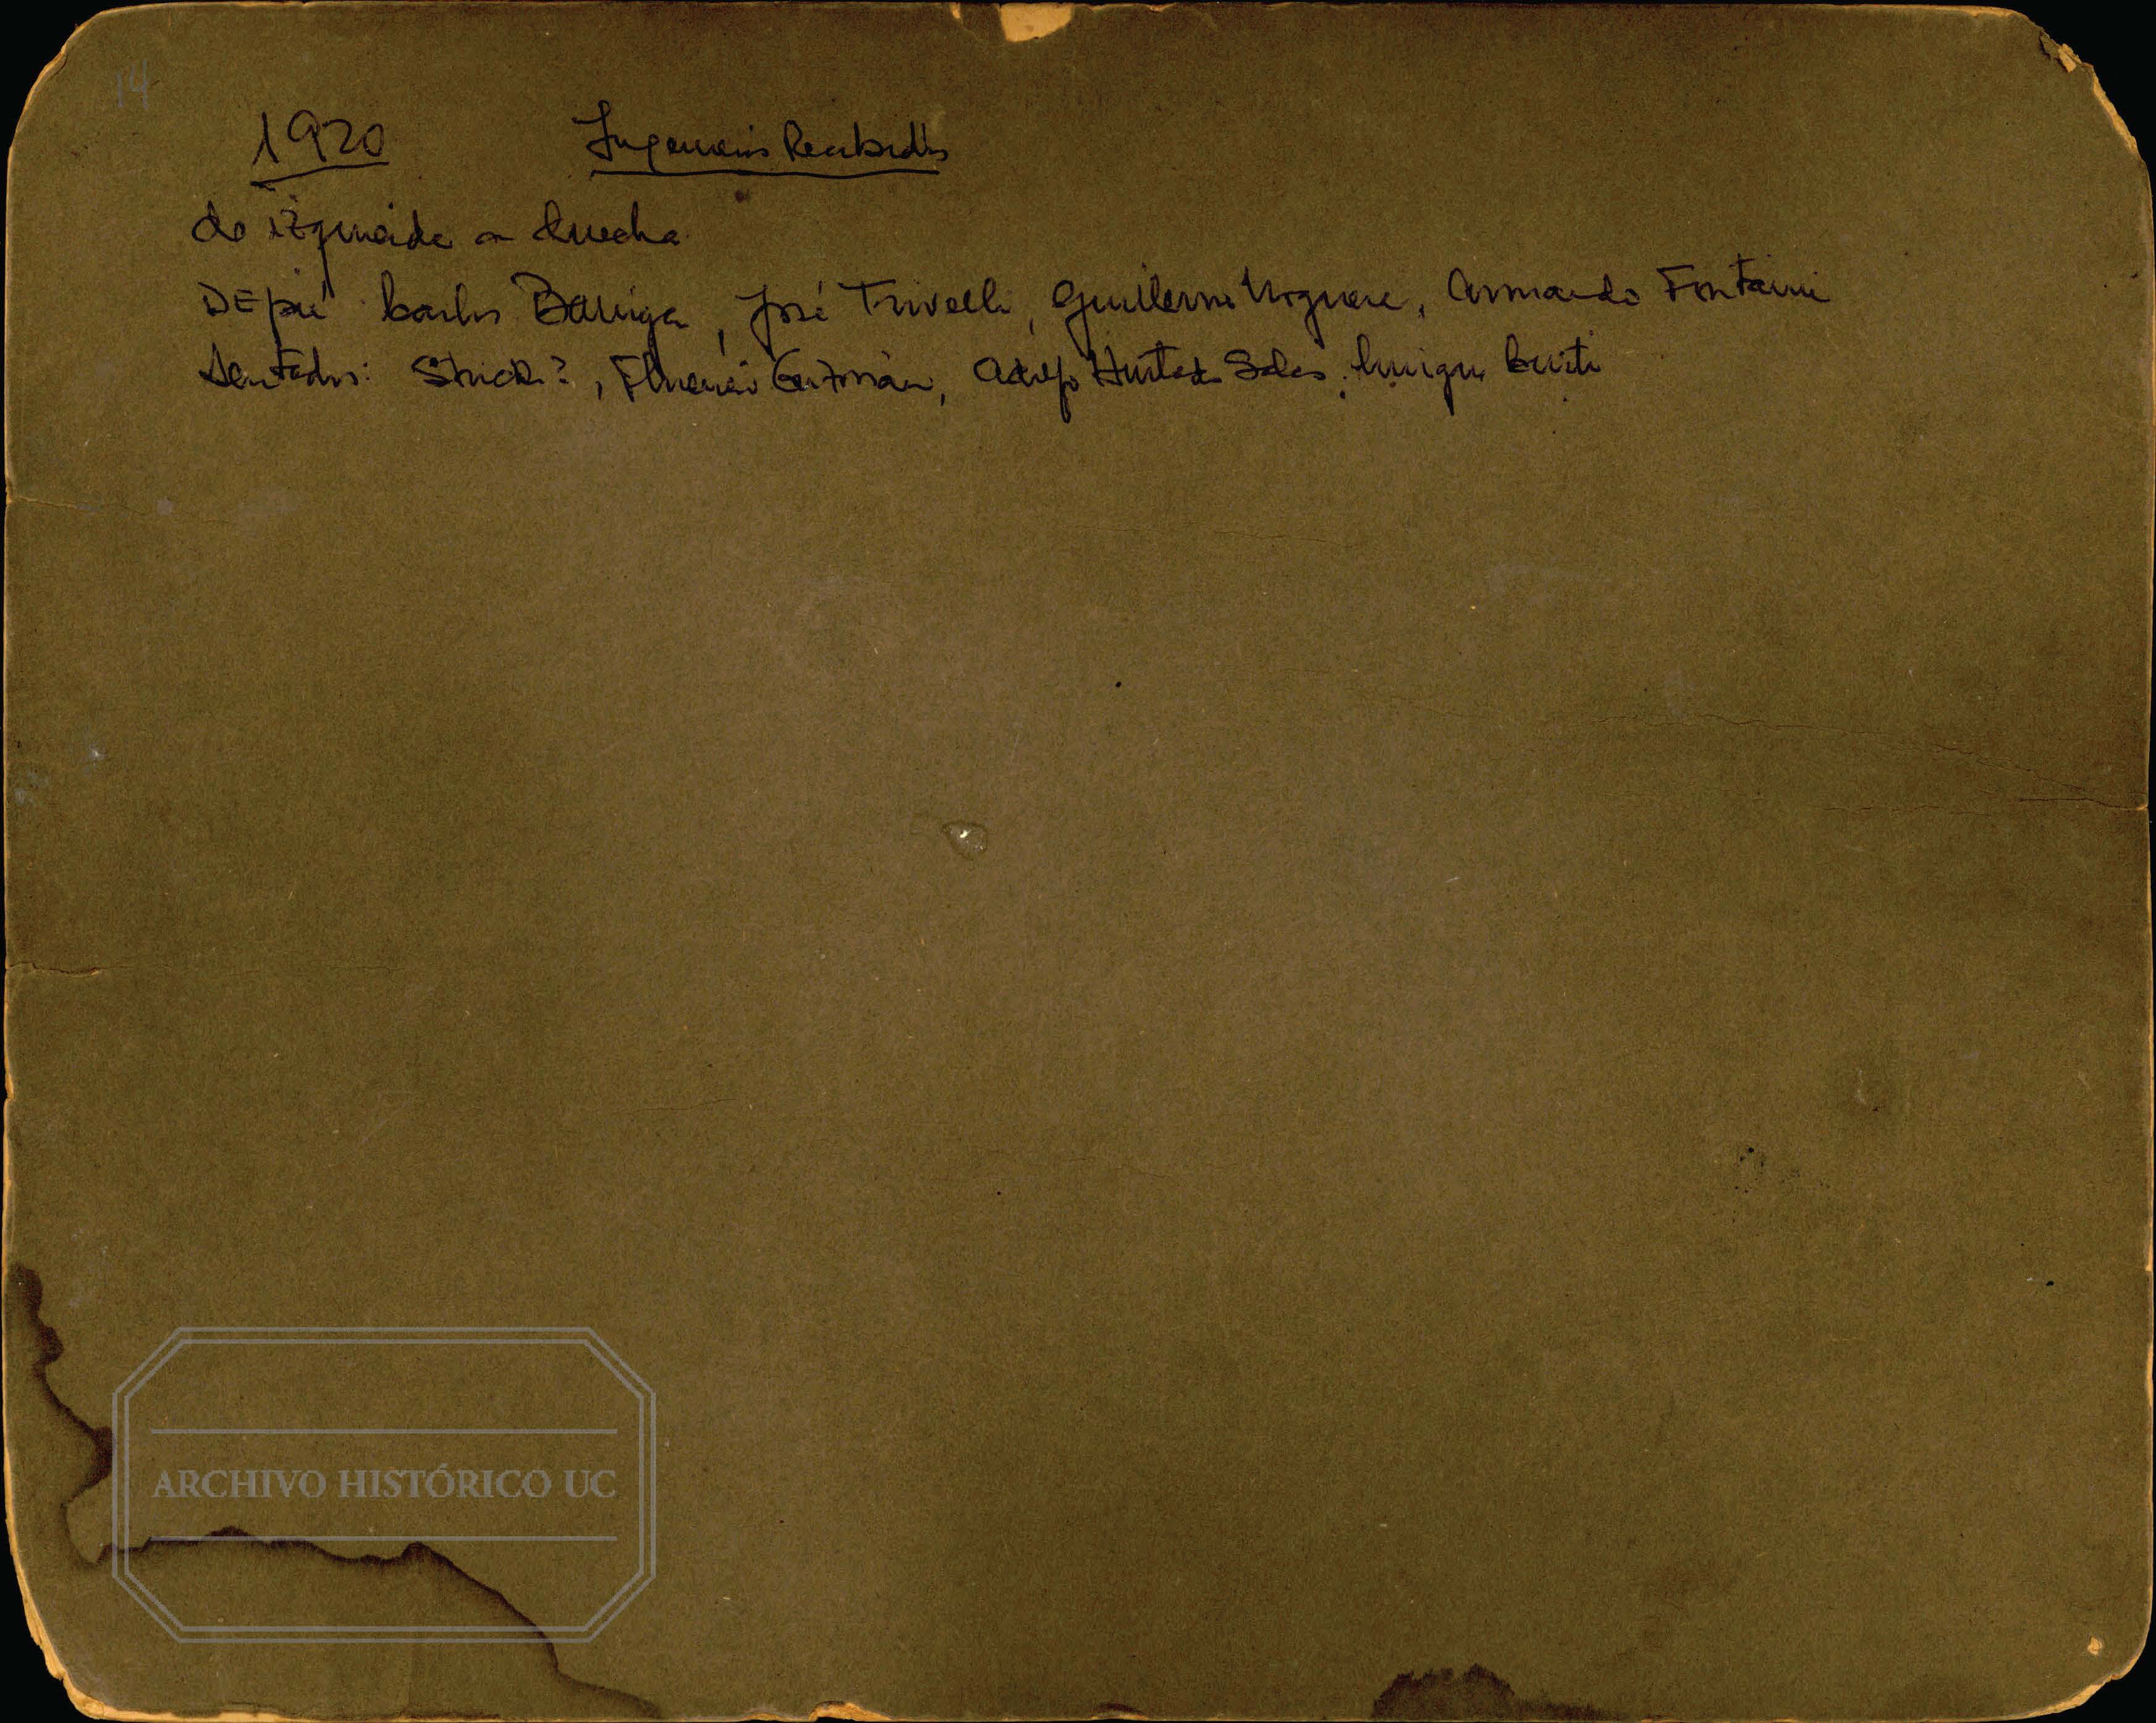 14
1920 Ingenieros Recibidos
de izquierda a derecha
DE pié Carlos Barriga, José Trivelli, Guillermo Noguera, Armando Fontaine
Sentados: ?, Florencio Guzmán, Adolfo Hurtado Salas, Enrique
ARCHIVO HISTÓRICO UC